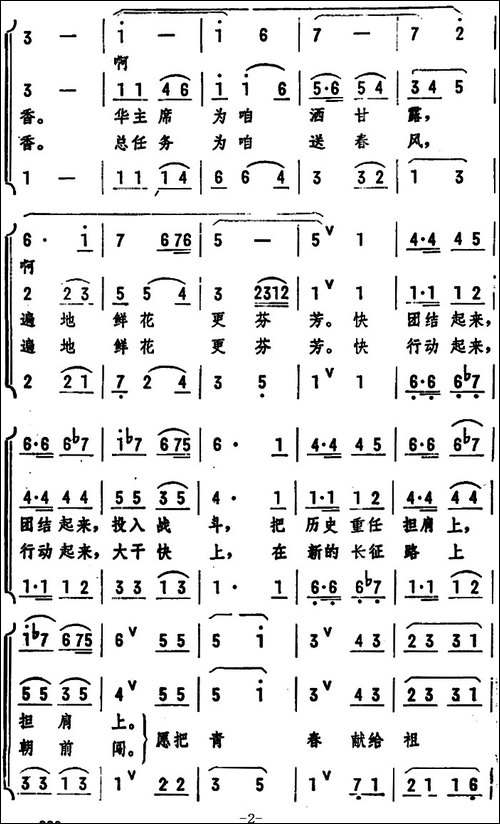 3 — | i — | i 6 | 7 — | 7 2
啊
3 — | 1 1 4 6 | i i 6 | 5·6 5 4 | 3 4 5
香。 华主席 为咱 洒甘 露，
香。 总任务 为咱 送春 风，
1 — | 1 1 1 4 | 6 6 4 | 3 3 2 | 1 3
6· i | 7 6 7 6 | 5 — | 5 ∨ 1 | 4·4 4 5
啊
2 2 3 | 5 5 4 | 3 2312 | 1 ∨ 1 | 1·1 1 2
遍地 鲜花 更芬 芳。快 团结起来，
遍地 鲜花 更芬 芳。快 行动起来，
2 2 1 | 7 2 4 | 3 5 | 1 ∨ 1 | 6·6 6 ♭7
6·6 6 ♭7 | i ♭7 6 7 5 | 6· 1 | 4·4 4 5 | 6·6 6 ♭7
4·4 4 4 | 5 5 3 5 | 4· 1 | 1·1 1 2 | 4·4 4 4
团结起来，投入战 斗， 把 历史重任 担肩上，
行动起来，大干快 上， 在 新的长征 路上
1·1 1 2 | 3 3 1 3 | 1· 1 | 6·6 6 ♭7 | 1·1 1 2
i ♭7 6 7 5 | 6 ∨ 5 5 | 5 i | 3 ∨ 4 3 | 2 3 3 1
5 5 3 5 | 4 ∨ 5 5 | 5 i | 3 ∨ 4 3 | 2 3 3 1
担肩 上。
愿把 青 春 献给 祖
朝前 闯。
3 3 1 3 | 1 ∨ 2 2 | 3 5 | 1 ∨ 7 1 | 2 1 1 6
-2-